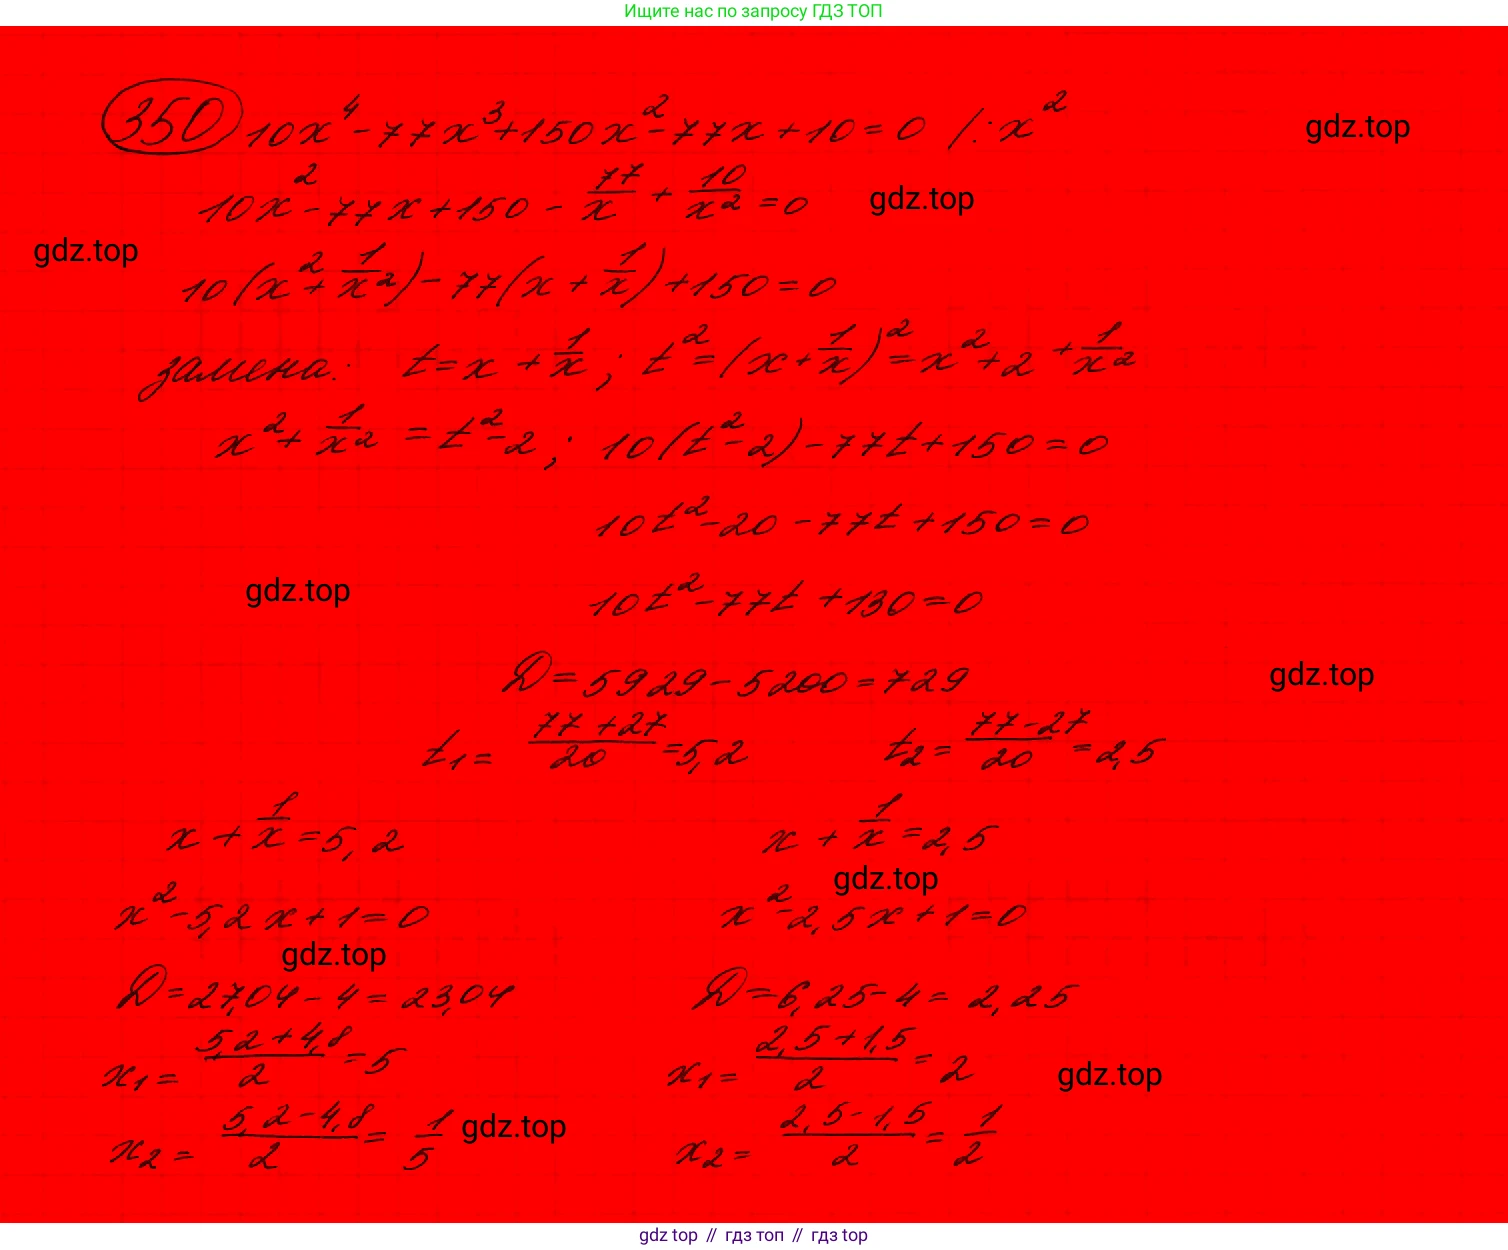 Ищите нас по запросу ГДЗ ТОП
350 10x⁴ - 77x³ + 150x² - 77x + 10 = 0 /: x²
gdz.top
10x² - 77x + 150 - 77/x + 10/x² = 0
gdz.top
gdz.top
10(x² + 1/x²) - 77(x + 1/x) + 150 = 0
замена: t = x + 1/x ; t² = (x + 1/x)² = x² + 2 + 1/x²
x² + 1/x² = t² - 2 ; 10(t² - 2) - 77t + 150 = 0
10t² - 20 - 77t + 150 = 0
gdz.top
10t² - 77t + 130 = 0
D = 5929 - 5200 = 729
gdz.top
t₁ = (77 + 27)/20 = 5,2 t₂ = (77 - 27)/20 = 2,5
x + 1/x = 5,2 x + 1/x = 2,5
gdz.top
x² - 5,2x + 1 = 0 x² - 2,5x + 1 = 0
gdz.top
D = 27,04 - 4 = 23,04 D = 6,25 - 4 = 2,25
x₁ = (5,2 + 4,8)/2 = 5 x₁ = (2,5 + 1,5)/2 = 2
gdz.top
x₂ = (5,2 - 4,8)/2 = 1/5 gdz.top x₂ = (2,5 - 1,5)/2 = 1/2
gdz top // гдз топ // гдз top